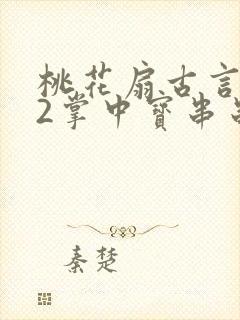 桃花扇古言
2掌中寳串
秦楚